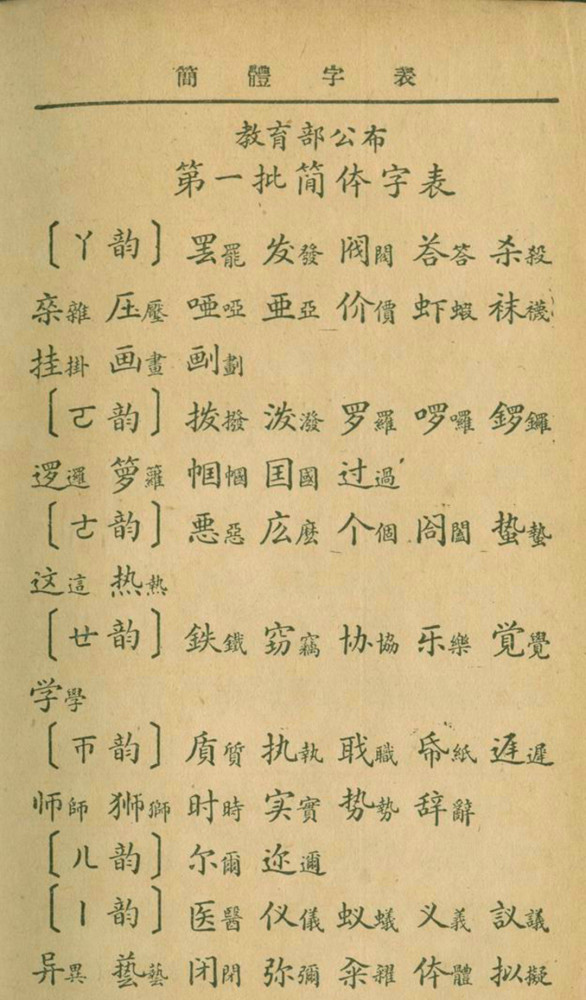 簡體字表
教育部公布
第一批简体字表
〔ㄚ韵〕 罢罷 发發 阀閥 荅答 杀殺
杂雜 压壓 哑啞 亜亞 价價 虾蝦 袜襪
挂掛 画畫 劃
〔ㄛ韵〕 拨撥 泼潑 罗羅 啰囉 鑼
逻邏 箩籮 帼幗 国國 过過
〔ㄜ韵〕 恶惡 庅麼 个個 閤 蛰蟄
这這 热熱
〔ㄝ韵〕 鉄鐵 窃竊 协協 乐樂 覚覺
学學
〔ㄭ韵〕 质質 执執 職 帋紙 遅遲
师師 狮獅 时時 实實 势勢 辞辭
〔ㄦ韵〕 尔爾 迩邇
〔ㄧ韵〕 医醫 仪儀 蚁蟻 义義 議
异異 藝 闭閉 弥彌 籴糴 体體 拟擬